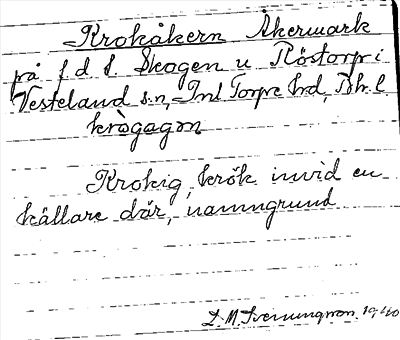 Krokåkern Åkermark
på f d l. Skogen u Röstorp i
Vesteland s.n, Inl Torpe hd, Boh. l.
krògagɔn
Krokig, krök invid en
källare där, namngrund
D. M. Svenungson. 1940